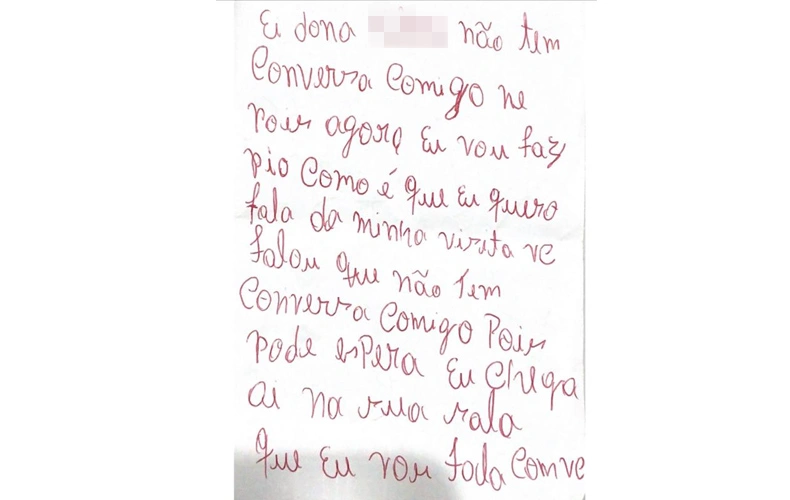 Ei dona não tem
Conversa Comigo ne
pois agora Eu vou faz
pio Como é que Eu quero
fala da minha visita vc
falou que não tem
Conversa Comigo Pois
pode esPera Eu Chega
ai na sua sala
que Eu vou foda Com vc